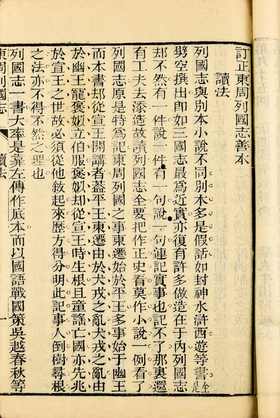 訂正東周列國志善本
讀法
列國志與別本小說不同別本多是假話如封神水滸西遊等書全是
劈空撰出卽如三國志最爲近實亦復有許多做造在于內列國志
却不然有一件說一件有一句說一句連記實事也記不了那裏還
有工夫去添造故讀列國志全要把作正史看莫作小說一例看了
列國志原是特爲記東周列國之事東遷始於平王多事始于幽王
而本書却從宣王開講者蓋平王東遷由於犬戎之亂犬戎之亂由
於寵褒姒立伯服褒姒却從宣王時生根且童謠亡國亦先兆
於宣王之世故必須從他敘起來歷方得分明此記事人倒樹尋根
之法亦不得不然之理也
列國志一書大率是靠左傳作底本而以國語戰國策吳越春秋等
東周列國志
讀法